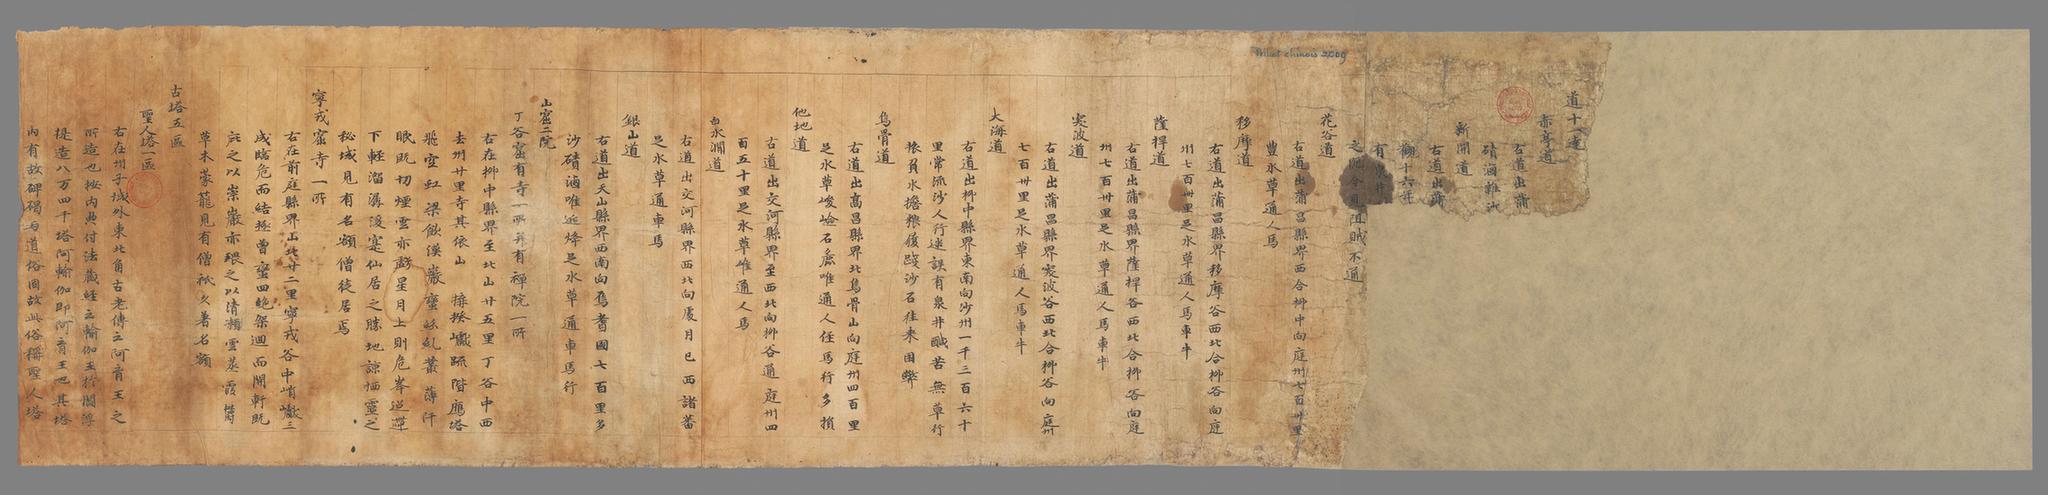 Pelliot chinois 2009
道十一達
赤亭道
右道出蒲
磧滷雜沙
新開道
右道出蒲
觀十六年
有泉井
之險今見阻賊不通
花谷道
右道出蒲昌縣界西合柳中向庭州七百卅里
豐水草通人馬
移摩道
右道出蒲昌縣界移摩谷西北合柳谷向庭
州七百卌里足水草通人馬車牛
薩捍道
右道出蒲昌縣界薩捍谷西北合柳谷向庭
州七百卅里足水草通人馬車牛
突波道
右道出蒲昌縣界突波谷西北合柳谷向庭州
七百卅里足水草通人馬車牛
大海道
右道出柳中縣界東南向沙州一千三百六十
里常流沙人行迷誤有泉井鹹苦無草行
旅負水擔糧履踐沙石往來困弊
烏骨道
右道出高昌縣界北烏骨山向庭州四百里
足水草峻嶮石麁唯通人徑馬行多損
他地道
右道出交河縣界至西北向柳谷通庭州四
百五十里足水草唯通人馬
白水澗道
右道出交河縣界西北向處月已西諸蕃
足水草通車馬
銀山道
右道出天山縣界西南向焉耆國七百里多
沙磧滷唯近烽足水草通車馬行
山窟二院
丁谷窟有寺一所並有禪院一所
右在柳中縣界至北山廿五里丁谷中西
去州廿里寺其依山 揆巘疏階鴈塔
飛空虹梁飲漢巖蠻紛糺叢薄阡
眠既切煙雲亦虧星月上則危峯迢遰
下輕溜潺湲寔仙居之勝地諒栖靈之
秘域見有名額僧徒居焉
寧戎窟寺一所
右在前庭縣界山北廿二里寧戎谷中峭巘三
成臨危而結極曾巒四絕架迴而開軒既
庇之以崇巖亦猥之以清瀨雲蒸霞鬱
草木蒙籠見有僧祇久著名額
古塔五區
聖人塔一區
右在州子城外東北角古老傳之阿育王之
所造也按內典付法藏經之輸伽王於閻浮
提造八万四千塔阿輸伽即阿育王也其塔
內有故碑碣与道俗同故此俗稱聖人塔